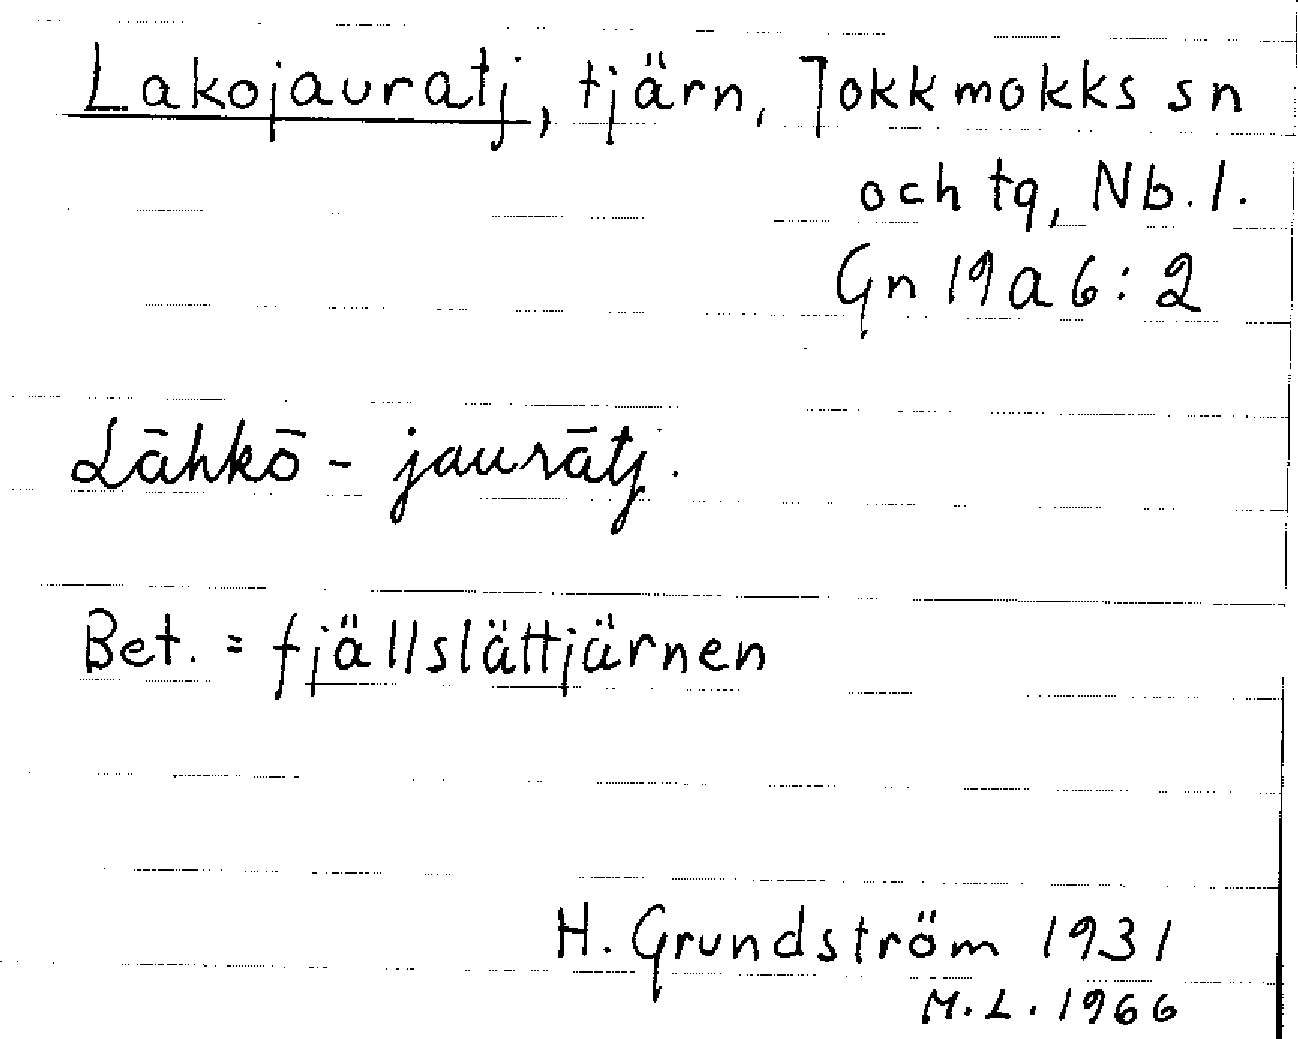 Lakojauratj, tjärn, Jokkmokks sn
och tg, Nb.l.
Gn 19a6:2
Lāhkō-jaurātj.
Bet. = fjällslättjärnen
H. Grundström 1931
M.L. 1966